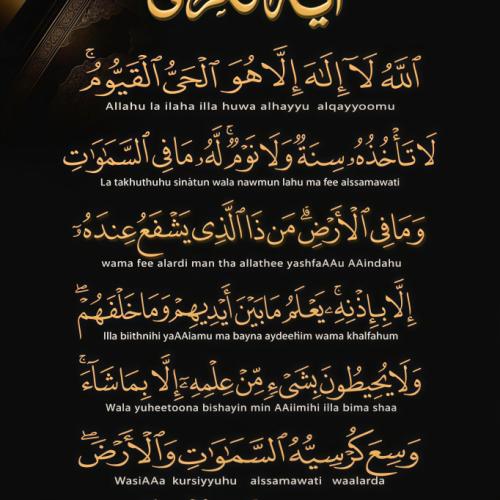 ٱللَّهُ لَآ إِلَـٰهَ إِلَّا هُوَ ٱلْحَىُّ ٱلْقَيُّومُ ۚ
Allahu la ilaha illa huwa alhayyu alqayyoomu
لَا تَأْخُذُهُۥ سِنَةٌ وَلَا نَوْمٌ ۚ لَّهُۥ مَا فِى ٱلسَّمَـٰوَٰتِ
La takhuthuhu sinàtun wala nawmun lahu ma fee alssamawati
وَمَا فِى ٱلْأَرْضِ ۗ مَن ذَا ٱلَّذِى يَشْفَعُ عِندَهُۥٓ
wama fee alardi man tha allathee yashfaAAu AAindahu
إِلَّا بِإِذْنِهِۦ ۚ يَعْلَمُ مَا بَيْنَ أَيْدِيهِمْ وَمَا خَلْفَهُمْ ۖ
Illa biithnihi yaAAlamu ma bayna aydeehim wama khalfahum
وَلَا يُحِيطُونَ بِشَىْءٍ مِّنْ عِلْمِهِۦٓ إِلَّا بِمَا شَآءَ ۚ
Wala yuheetoona bishayin min AAilmihi illa bima shaa
وَسِعَ كُرْسِيُّهُ ٱلسَّمَـٰوَٰتِ وَٱلْأَرْضَ ۖ
WasiAAa kursiyyuhu alssamawati waalarda